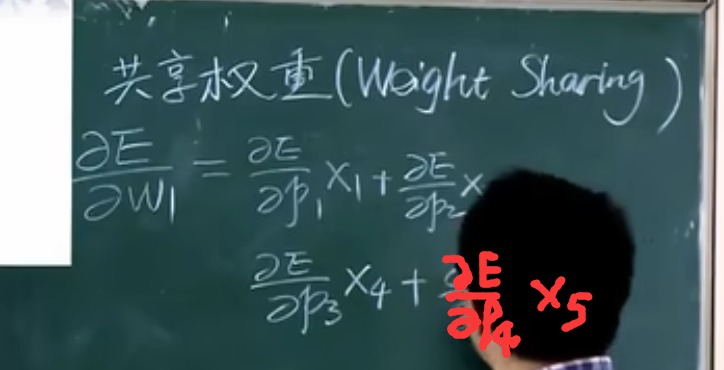 共享权重(Weight Sharing)
∂E/∂W₁ = ∂E/∂p₁ X₁ + ∂E/∂p₂ X
∂E/∂p₃ X₄ + ∂E/∂p₄ X₅